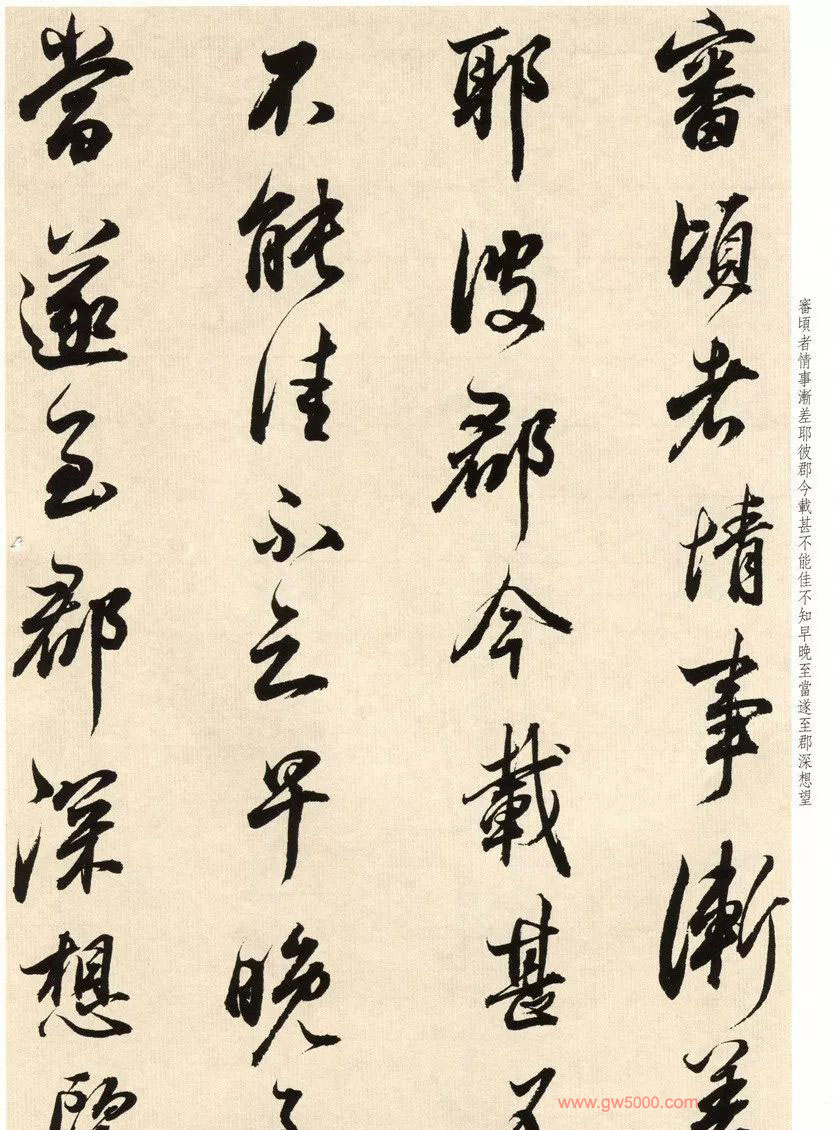 審頃者情事漸差
耶彼郡今載甚
不能佳不知早晚
當遂至郡深想望
審頃者情事漸差耶彼郡今載甚不能佳不知早晚至當遂至郡深想望
www.gw5000.com